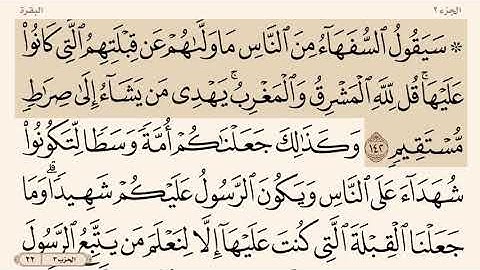 الجزء ٢ البقرة
۞ سَيَقُولُ ٱلسُّفَهَآءُ مِنَ ٱلنَّاسِ مَا وَلَّىٰهُمْ عَن قِبْلَتِهِمُ ٱلَّتِى كَانُوا۟
عَلَيْهَا ۚ قُل لِّلَّهِ ٱلْمَشْرِقُ وَٱلْمَغْرِبُ ۚ يَهْدِى مَن يَشَآءُ إِلَىٰ صِرَٰطٍ
مُّسْتَقِيمٍ ١٤٢ وَكَذَٰلِكَ جَعَلْنَٰكُمْ أُمَّةً وَسَطًا لِّتَكُونُوا۟
شُهَدَآءَ عَلَى ٱلنَّاسِ وَيَكُونَ ٱلرَّسُولُ عَلَيْكُمْ شَهِيدًا ۗ وَمَا
جَعَلْنَا ٱلْقِبْلَةَ ٱلَّتِى كُنتَ عَلَيْهَآ إِلَّا لِنَعْلَمَ مَن يَتَّبِعُ ٱلرَّسُولَ
الحزب ٣ ٢٢